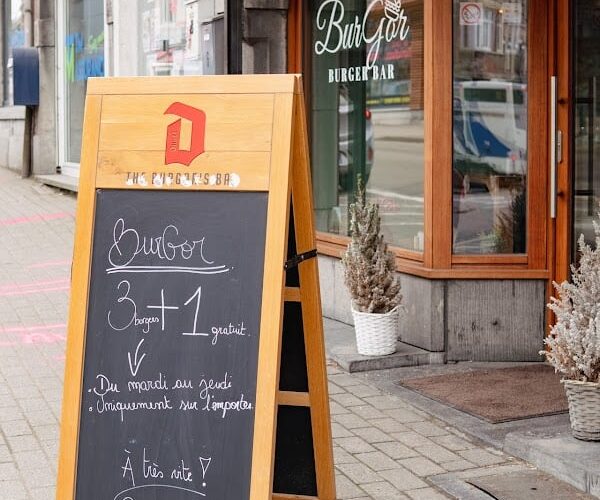 BurGor
BURGER BAR
D
Duvel
THE BURGOR'S BAR
BurGor
3 + 1
burgers gratuit.
. Du mardi au jeudi
. Uniquement sur l'emporter.
À très vite !